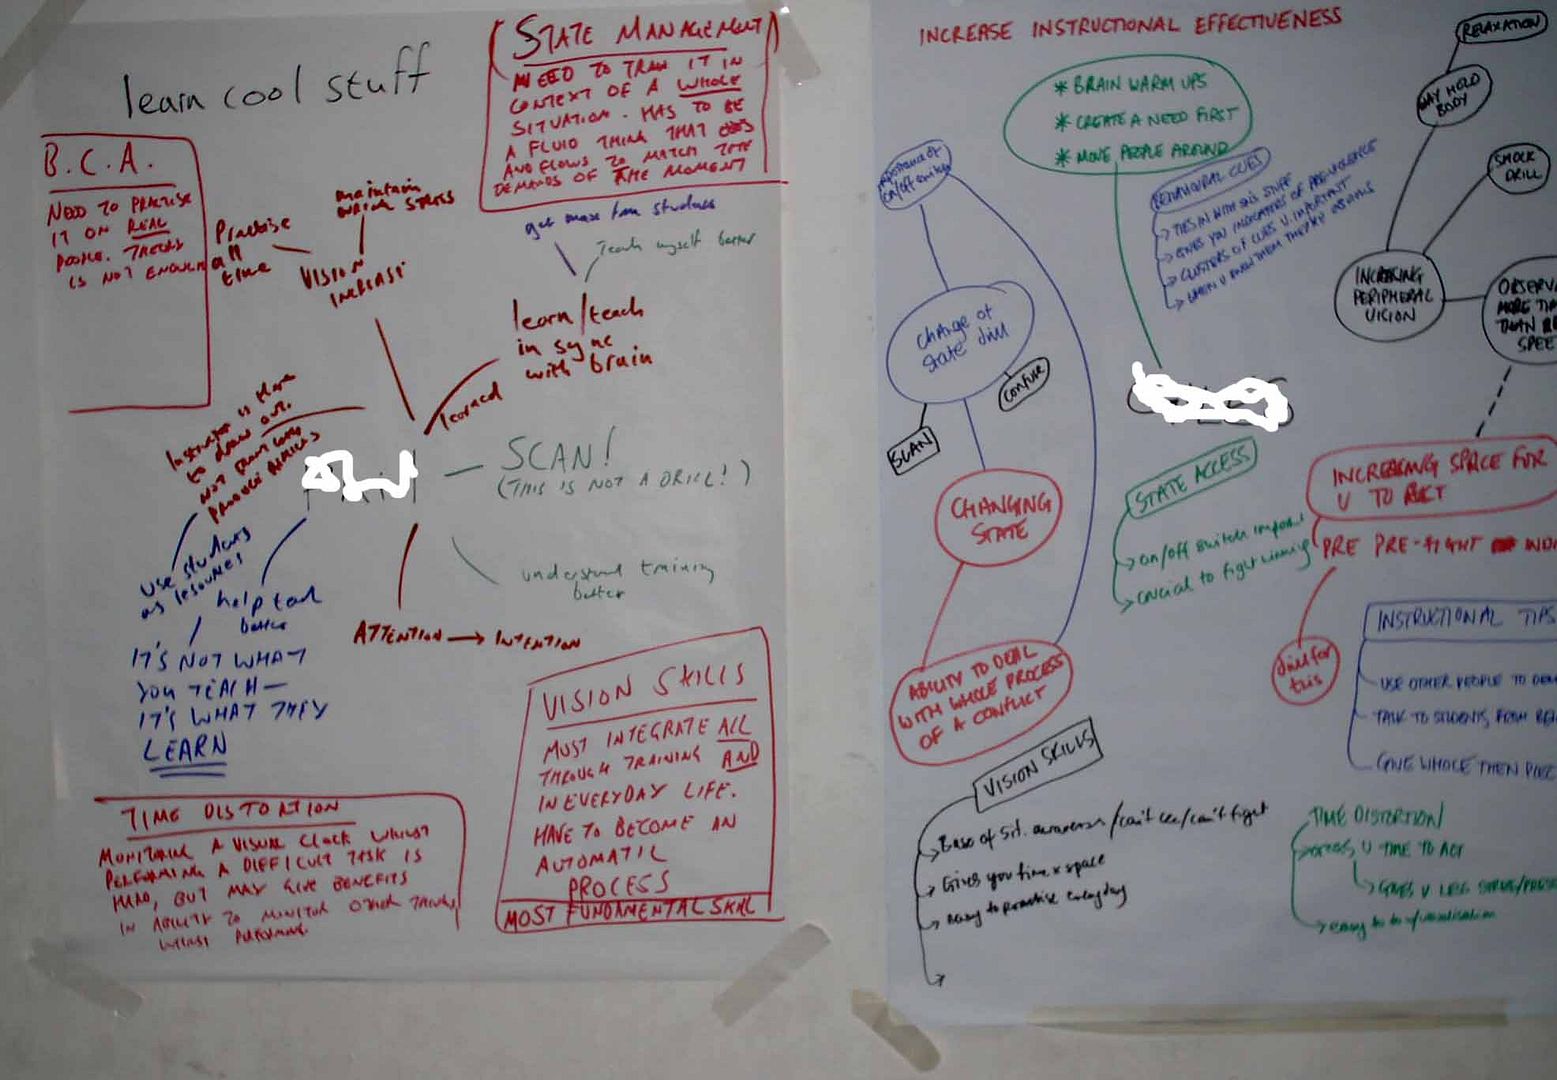 learn cool stuff
STATE MANAGEMENT
NEED TO TRAIN IT IN
CONTEXT OF A WHOLE
SITUATION. HAS TO BE
A FLUID THING THAT EBBS
AND FLOWS TO MATCH THE
DEMANDS OF THE MOMENT
B.C.A.
NEED TO PRACTISE
IT ON REAL
PEOPLE. THEORY
IS NOT ENOUGH
Practise
all
time
maintain
under stress
VISION
INCREASE
get more from students
Teach myself better
learn/teach
in sync
with brain
learned
Instructor is there
to draw out.
NOT
SCAN!
(THIS IS NOT A DRILL!)
use students
as resources
help teach
better
understand training
better
ATTENTION → INTENTION
IT'S NOT WHAT
YOU TEACH—
IT'S WHAT THEY
LEARN
VISION SKILLS
MUST INTEGRATE ALL
THROUGH TRAINING AND
IN EVERYDAY LIFE.
HAVE TO BECOME AN
AUTOMATIC
PROCESS
MOST FUNDAMENTAL SKILL
TIME DISTORTION
MONITORING A VISUAL CLOCK WHILST
PERFORMING A DIFFICULT TASK IS
HARD, BUT MAY GIVE BENEFITS
IN ABILITY TO MONITOR OTHER THINGS
WHILST PERFORMING
INCREASE INSTRUCTIONAL EFFECTIVENESS
* BRAIN WARM UPS
* CREATE A NEED FIRST
* MOVE PEOPLE AROUND
importance of
on/off switch
BEHAVIOURAL CUES
TIES IN WITH S+S STUFF
GIVES YOU INDICATORS OF PRE-VIOLENCE
CLUSTERS OF CUES V. IMPORTANT
WHEN U KNOW THEM THEY'RE OBVIOUS
RELAXATION
BODY
SHOCK
DRILL
INCREASING
PERIPHERAL
VISION
MORE
THAN
SPEE
Change of
State drill
CONFUSE
SCAN
CHANGING
STATE
STATE ACCESS
on/off switch import
crucial to fight winning
INCREASING SPACE FOR
U TO REACT
PRE PRE-FIGHT
drill for
this
ABILITY TO DEAL
WITH WHOLE PROCESS
OF A CONFLICT
INSTRUCTIONAL TIPS
USE OTHER PEOPLE TO DEM
TALK TO STUDENTS FROM BE
GIVE WHOLE THEN PIEC
VISION SKILLS
Base of Sit. awareness/can't see/can't fight
Gives you time + space
easy to practise everyday
TIME DISTORTION
U TIME TO ACT
GIVES U LESS STRESS/PRESS
easy to